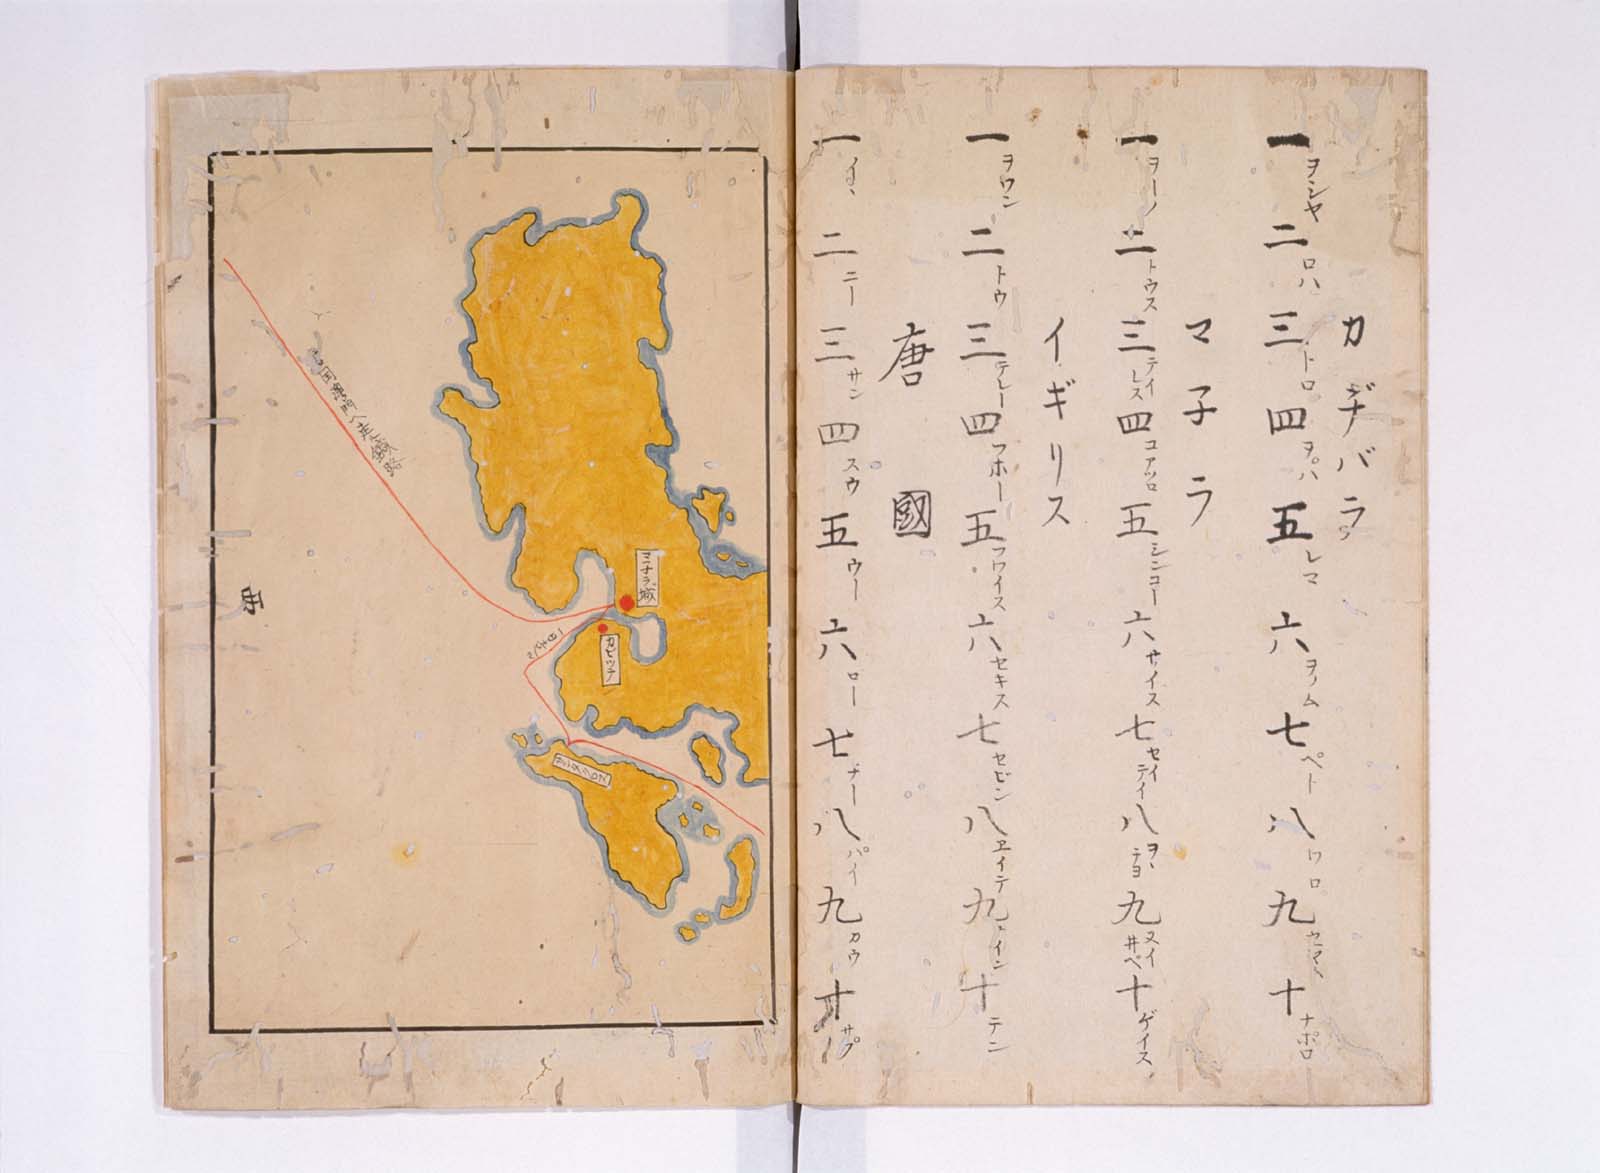 カヂバラ
一ヲシヤ 二ロハ 三トロ 四ヲパ 五レマ 六ヲノム 七ペト 八ワロ 九セマヽ 十ナポロ
マ子ラ
一ヲーノ 二トウス 三テイレス 四コアツロ 五シンコー 六サイス 七セイテイ 八ヲヽテヨ 九ヌイ井ベ 十ゲイス
イギリス
一ヲワン 二トウ 三テレー 四フホー 五フワイス 六セキス 七セビン 八ヱイテ 九ナイン 十テン
唐國
一イヽ 二ニー 三サン 四スウ 五ウー 六ロー 七チー 八パイ 九カウ 十サプ
城
カビツテ
西